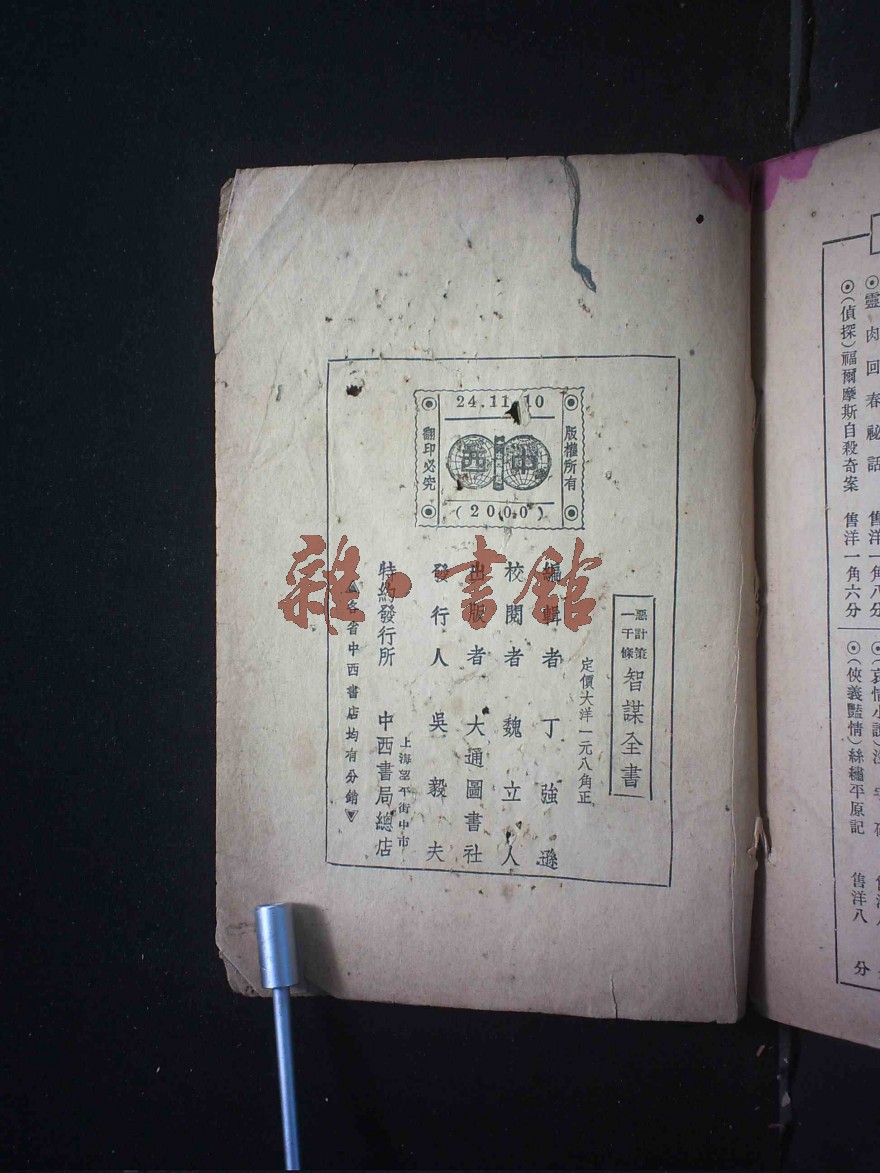 ◉靈肉回春祕話　售洋一角八分
◉(偵探)福爾摩斯自殺奇案　售洋一角六分
◉(哀情小說)
◉(俠義豔情)絲繡平原記　售洋八分
24.11.10
版權所有
中西
翻印必究
(2000)
雜·書館
惡計策
一千條
智謀全書
定價大洋一元八角正
編輯者　丁強遜
校閱者　魏立人
出版者　大通圖書社
發行人　吳毅夫
上海望平街中市
特約發行所　中西書局總店
各省中西書店均有分銷